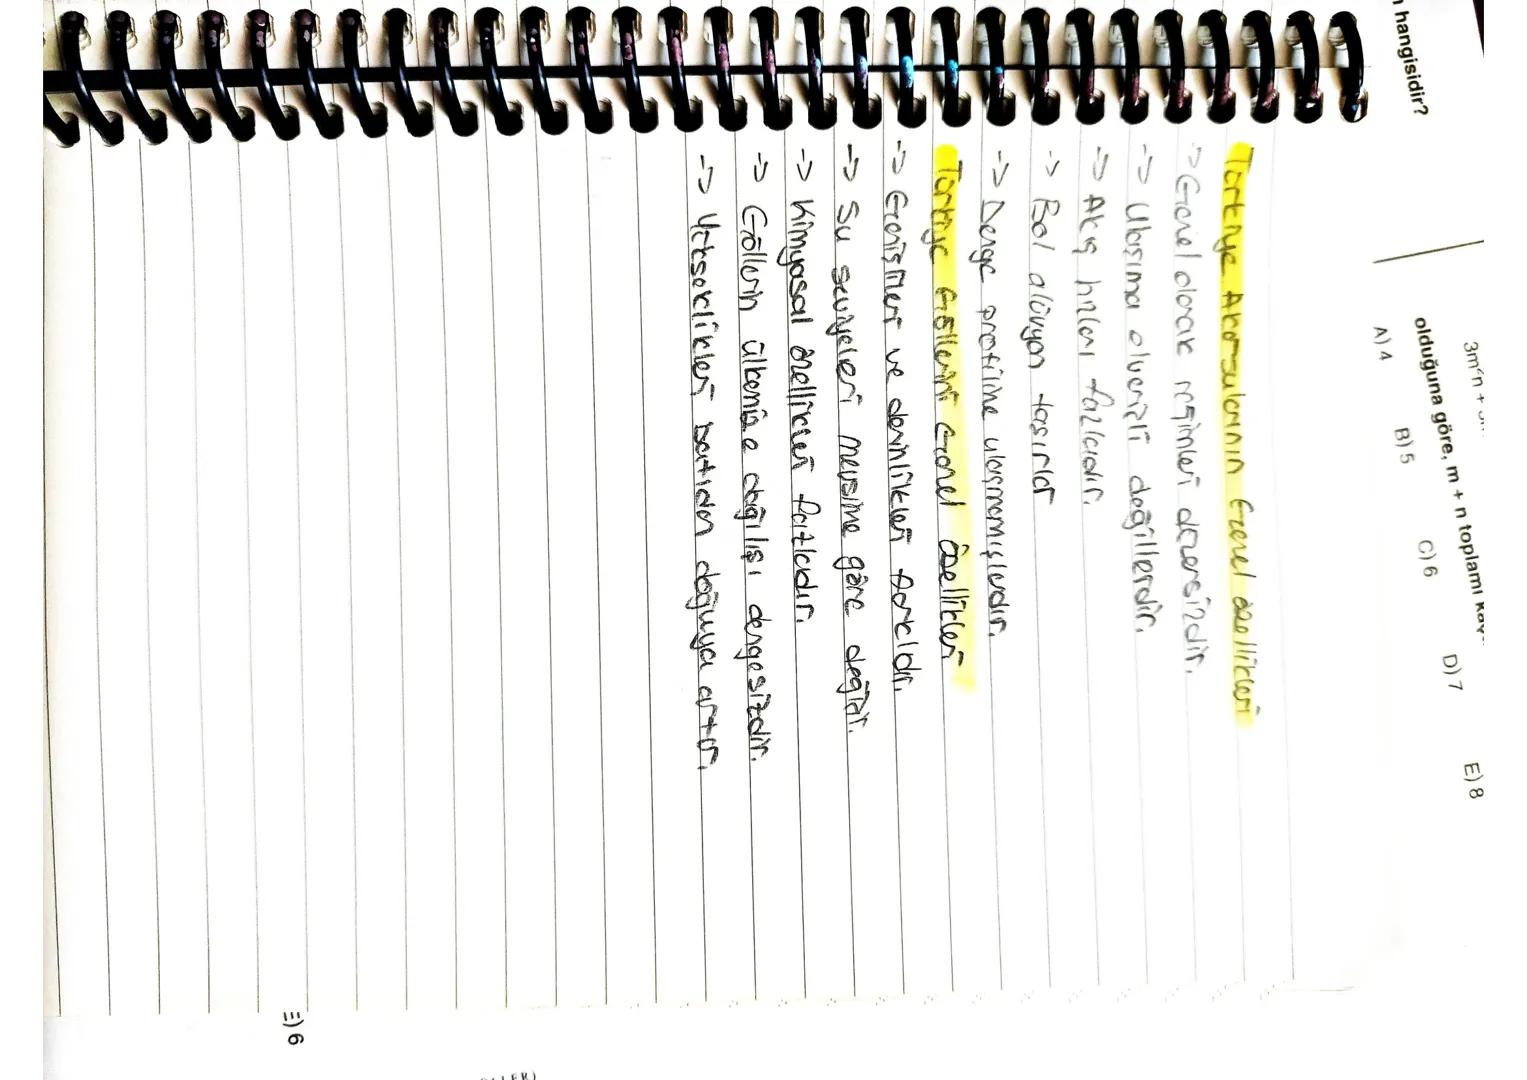 hangisidir?
olduğuna göre, m + n toplamı
A) 4
B) 5
C) 6
D) 7
E) 8
Türkiye Akarsularının Genel özellikleri
-> Genel olarak rejimleri düzensizdir.
-> Ulaşıma elverişli değillerdir.
-> Akış hızları fazladır.
-> Bol alüvyon taşırlar
-> Denge profiline ulaşmamışlardır.
Türkiye Göllerinin Genel özellikleri
-> Genişlikleri ve derinlikleri farklıdır.
-> Su seviyeleri mevsime göre değişir.
-> Kimyasal özellikleri fazladır.
-> Göllerin ülkemize dağılışı dengesizdir.
-> Yükseklikleri batıdan doğuya artar.
E) 6